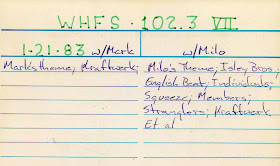 WHFS · 102.3 VII
1-21-83 w/Mark w/Milo
Mark's theme; Kraftwerk; Milo's Theme; Isley Bros.;
English Beat; Individuals;
Squeeze; Members;
Stranglers; Kraftwerk
Et al